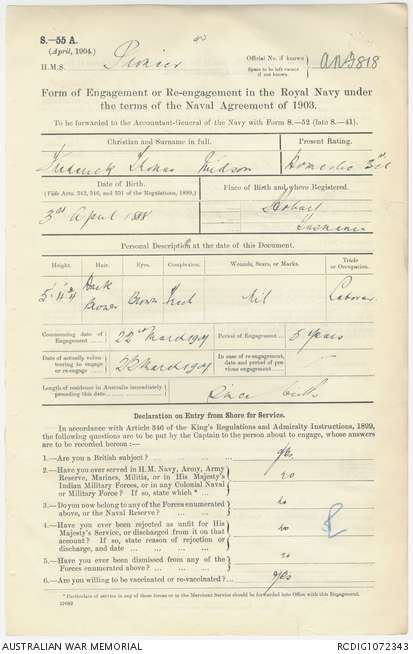 S.—55 A.
(April, 1904.)
H.M.S. Pioneer
Official No. if known
Space to be left vacant if not known.
Form of Engagement or Re-engagement in the Royal Navy under
the terms of the Naval Agreement of 1903.
To be forwarded to the Accountant-General of the Navy with Form S.—52 (late S.—41).
Christian and Surname in full.
Present Rating.
Frederick Thomas
Domestic 3rd Cl
Date of Birth.
(Vide Arts. 342, 346, and 351 of the Regulations, 1899.)
Place of Birth and where Registered.
3rd April 1888
Hobart
Tasmania
Personal Description at the date of this Document.
Height.
Hair.
Eyes.
Complexion.
Wounds, Scars, or Marks.
Trade or Occupation.
Dark Brown
Brown
Fresh
Nil
Labourer
Commencing date of Engagement ...
22nd March 1907
Period of Engagement ...
5 Years
Date of actually volunteering to engage or re-engage ...
22 March 1907
In case of re-engagement, date and period of previous engagement ...
Length of residence in Australia immediately preceding this date ...
Since birth
Declaration on Entry from Shore for Service.
In accordance with Article 346 of the King's Regulations and Admiralty Instructions, 1899,
the following questions are to be put by the Captain to the person about to engage, whose answers
are to be recorded hereon :—
1.—Are you a British subject? ...
Yes
2.—Have you ever served in H.M. Navy, Army, Army
Reserve, Marines, Militia, or in His Majesty's
Indian Military Forces, or in any Colonial Naval
or Military Force? If so, state which * ...
no
3.—Do you now belong to any of the Forces enumerated
above, or the Naval Reserve? ...
no
4.—Have you ever been rejected as unfit for His
Majesty's Service, or discharged from it on that
account? If so, state reason of rejection or
discharge, and date ...
no
5.—Have you ever been dismissed from any of the
Forces enumerated above? ...
no
6.—Are you willing to be vaccinated or re-vaccinated? ...
Yes
* Particulars of service in any of these forces or in the Merchant Service should be forwarded into Office with this Engagement.
AUSTRALIAN WAR MEMORIAL
RCDIG1072343